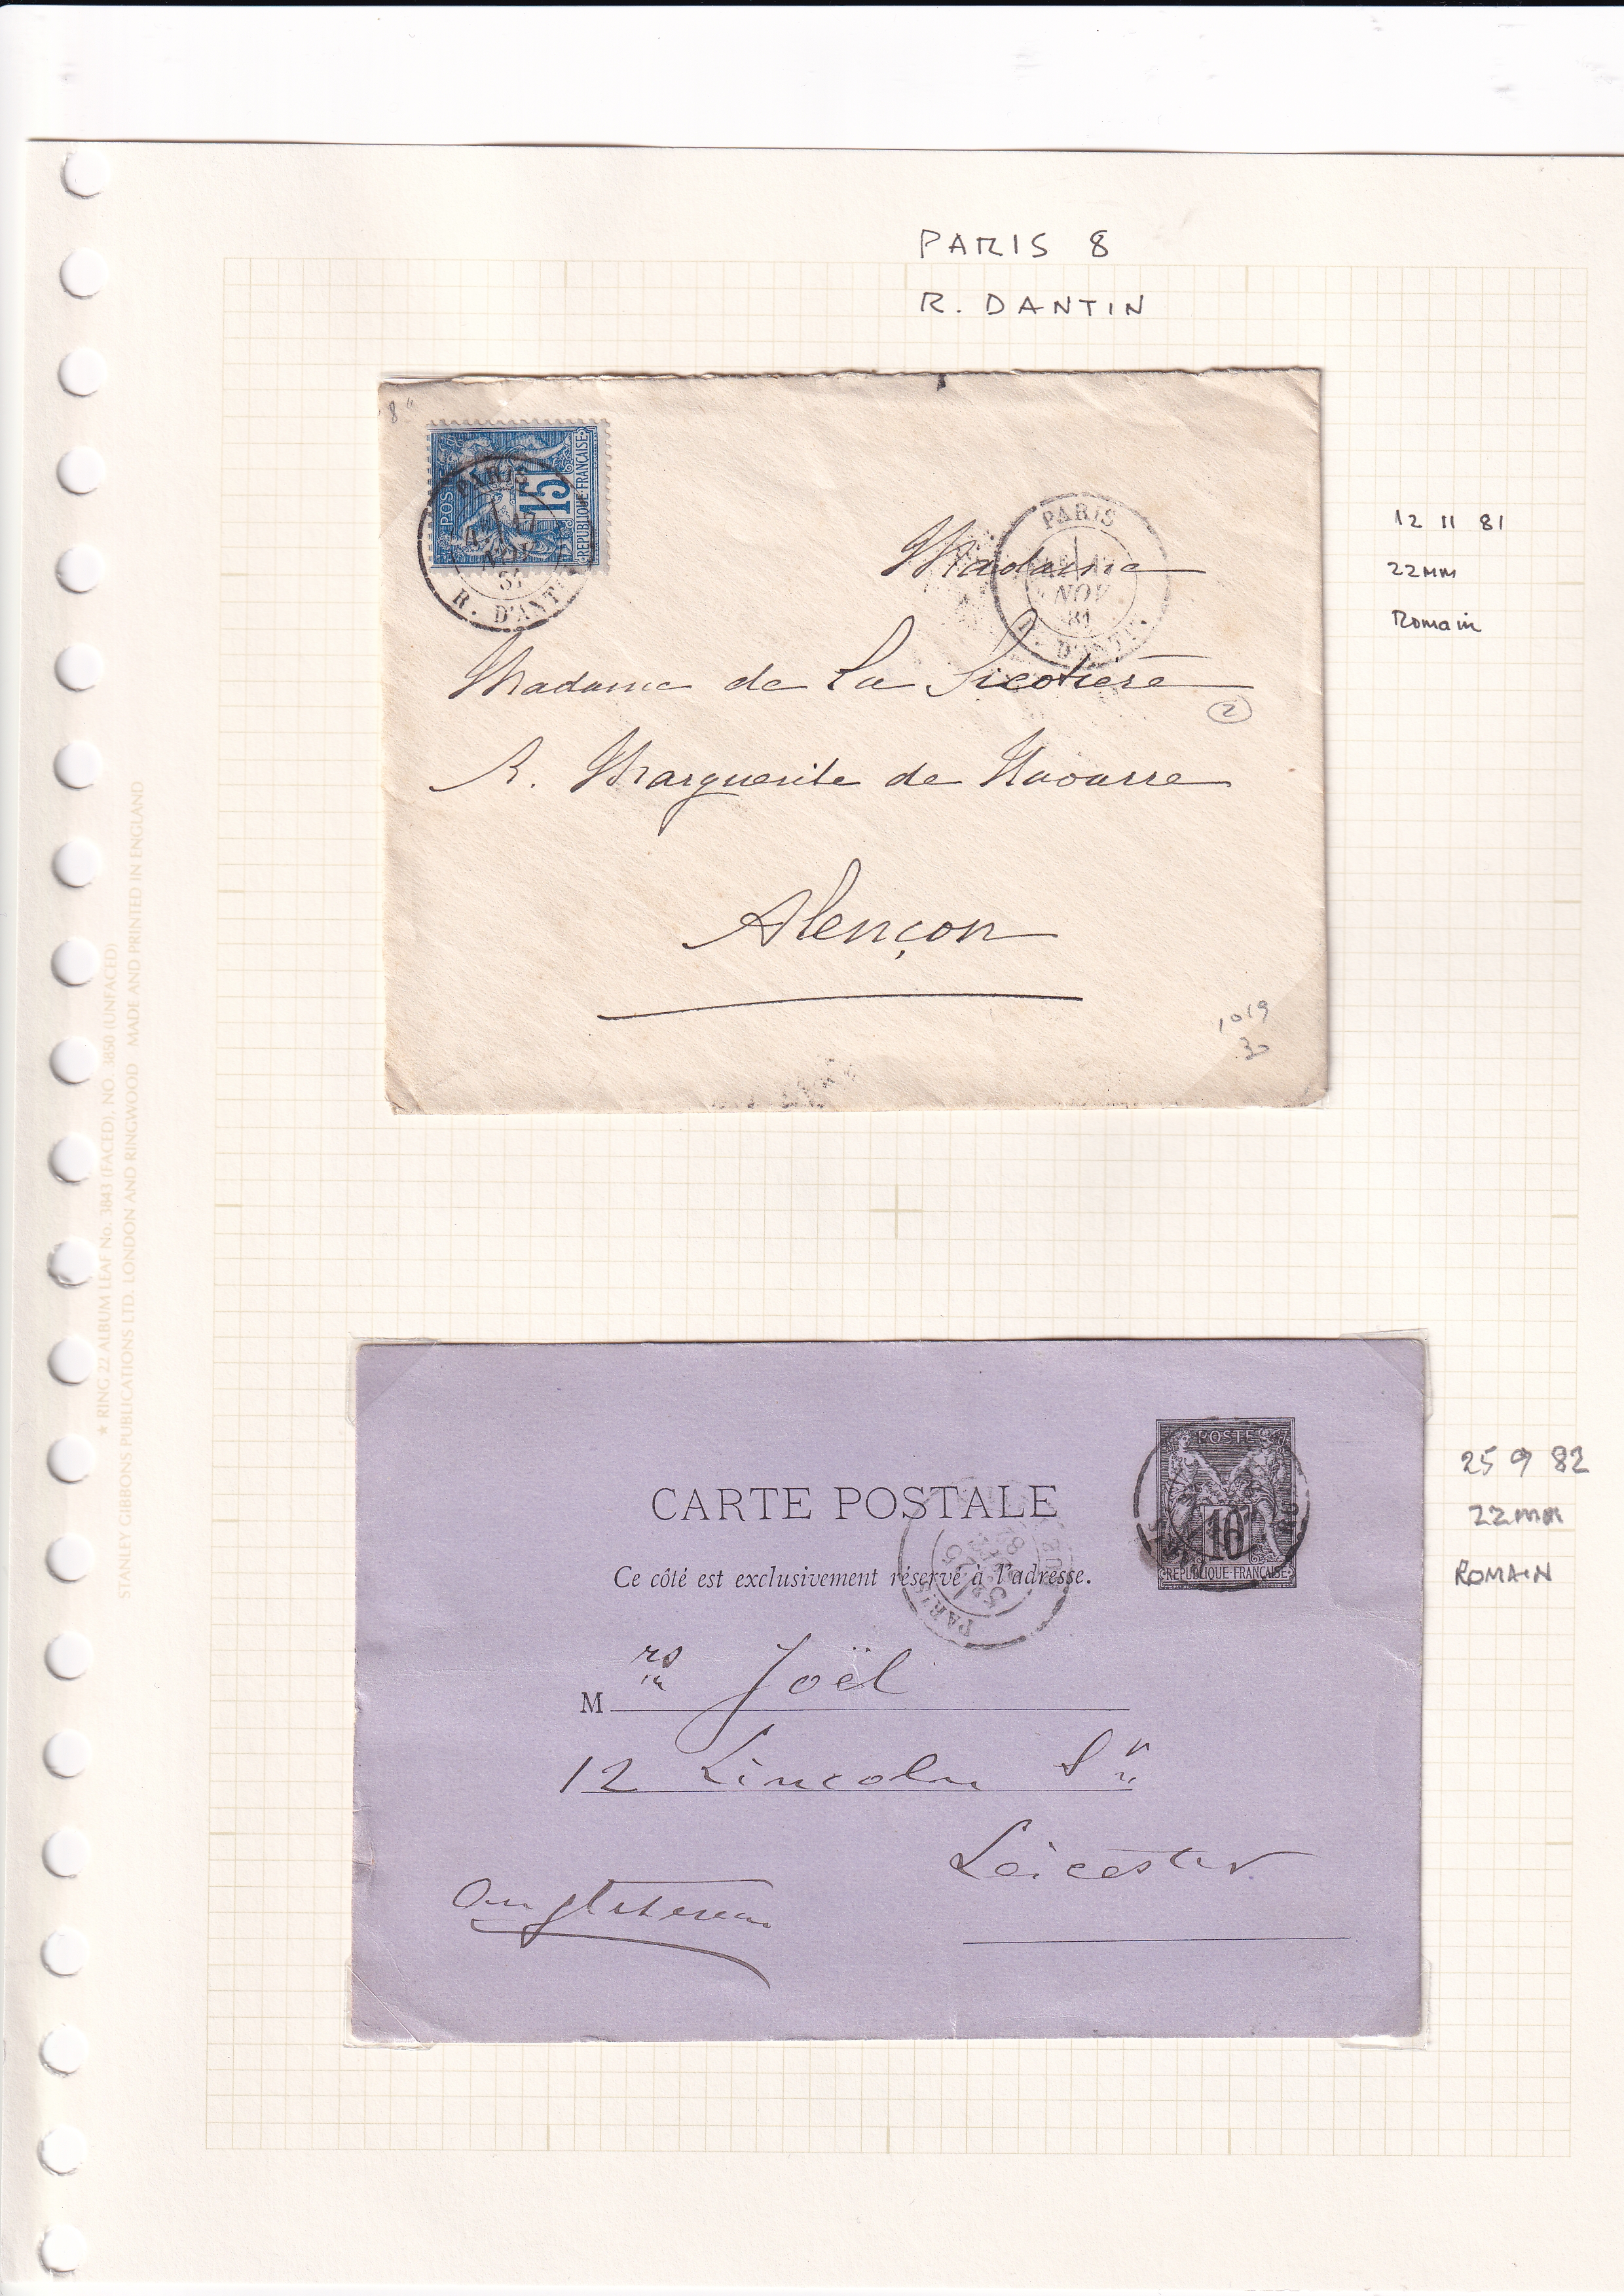 PARIS 8
R. DANTIN
8"
POSTE
15
REPUBLIQUE FRANÇAISE
PARIS
NOV
81
R. D'ANT
PARIS
NOV
81
D'ANTI
12 11 81
22MM
Romain
Madame
Madame de La Sicotière
2
R. Marguerite de Navarre
Alençon
1019
30
CARTE POSTALE
Ce côté est exclusivement réservé à l'adresse.
POSTE
10
REPUBLIQUE FRANÇAISE
PARIS
82
25 9 82
22mm
ROMAIN
Mrs Joël
12 Lincoln Sr
Leicester
Angleterre
★ RING 22 ALBUM LEAF No. 3843 (FACED), NO. 3850 (UNFACED)
STANLEY GIBBONS PUBLICATIONS LTD. LONDON AND RINGWOOD MADE AND PRINTED IN ENGLAND